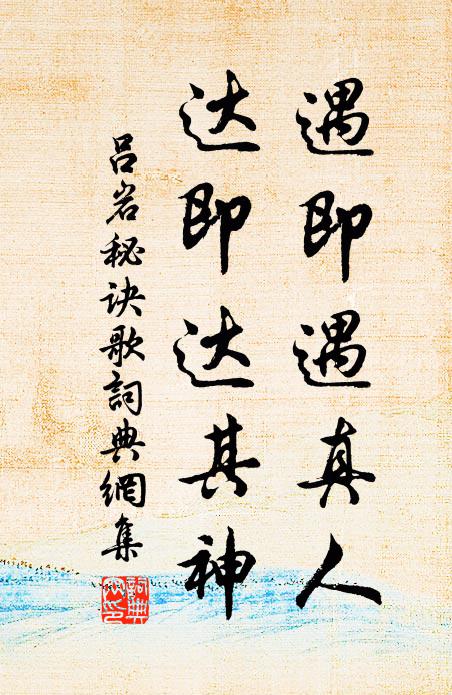 遇即遇真人
达即达其神
吕岩秘诀歌詞典網集